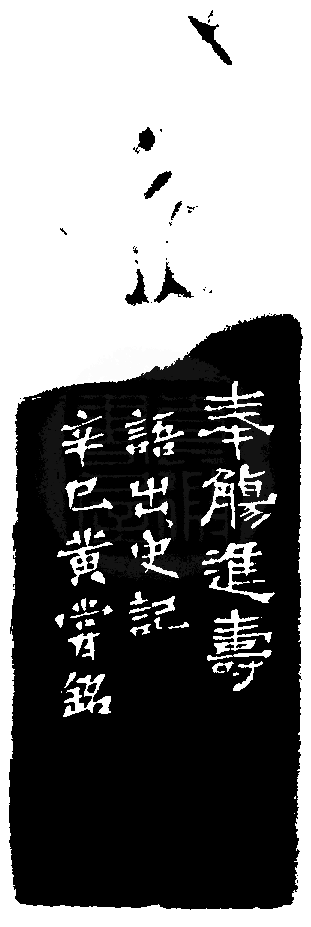 奉觴進壽
語出史記
辛巳黃嘗銘